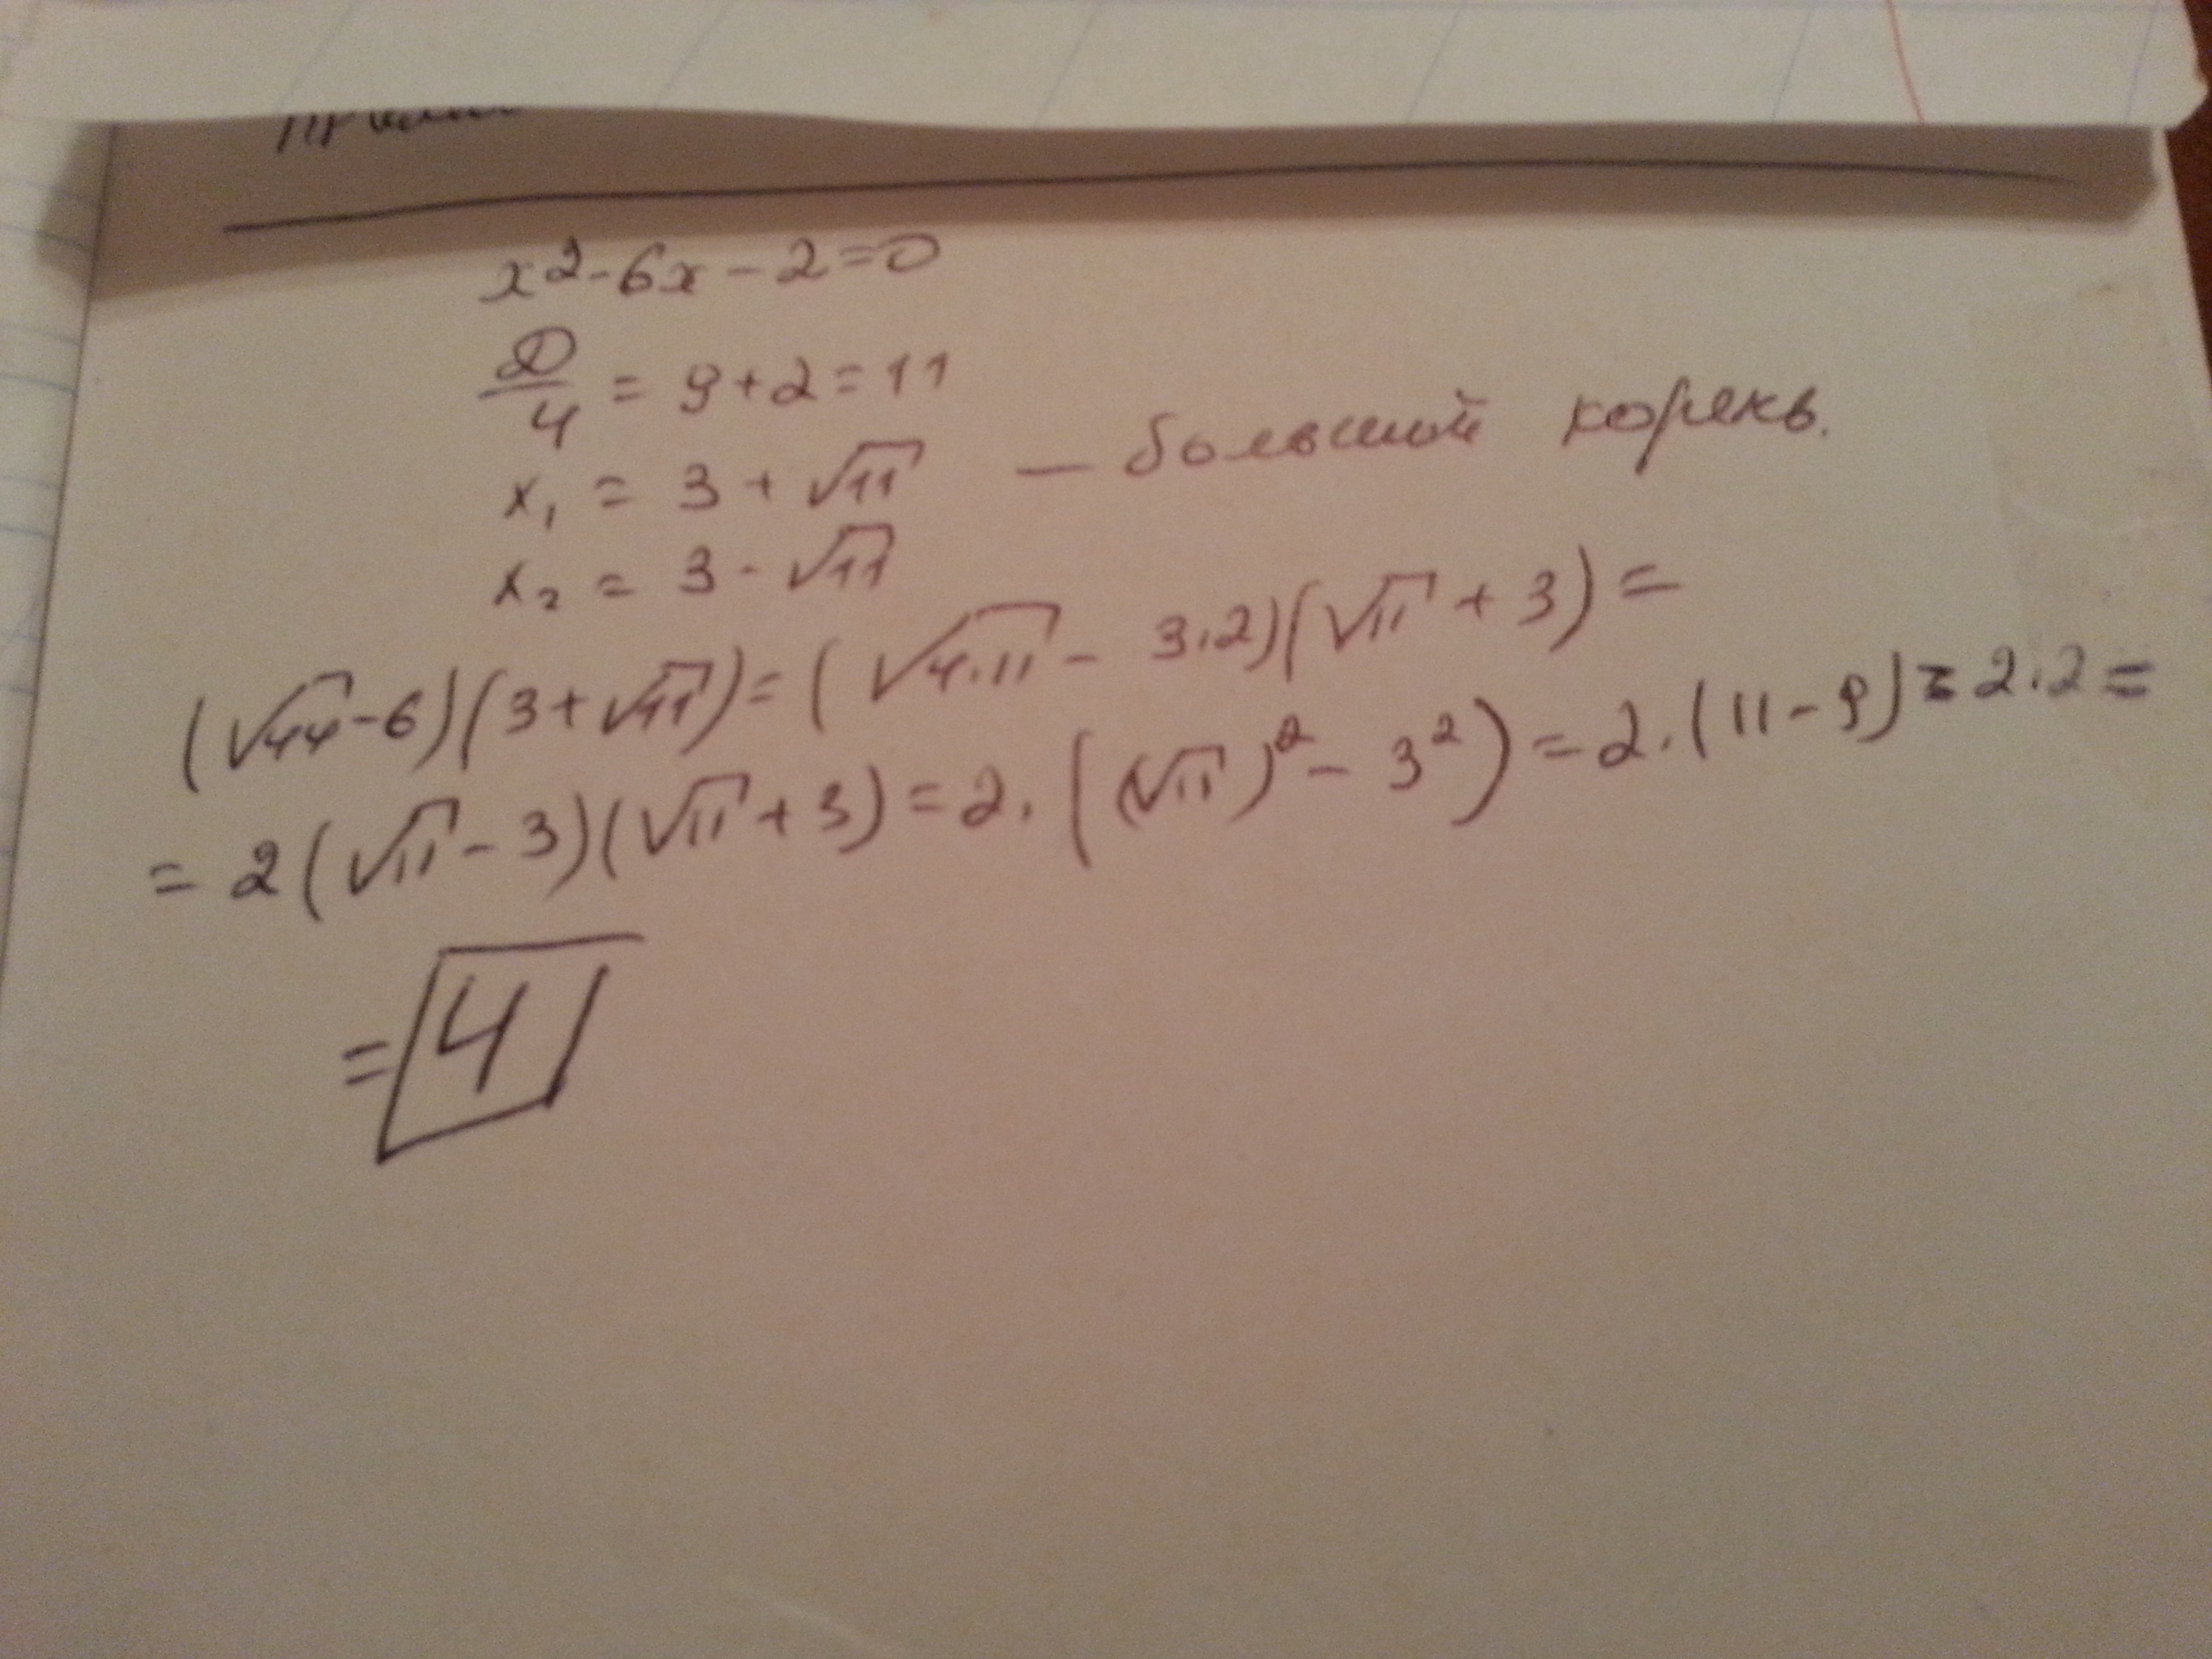 x²-6x-2=0
D/4 = 9+2=11
x₁ = 3+√11 — больший корень.
x₂ = 3-√11
(√44-6)(3+√11)=(√4·11 - 3·2)(√11+3)=
= 2(√11-3)(√11+3)=2·((√11)²-3²)=2·(11-9)=2·2=
=4